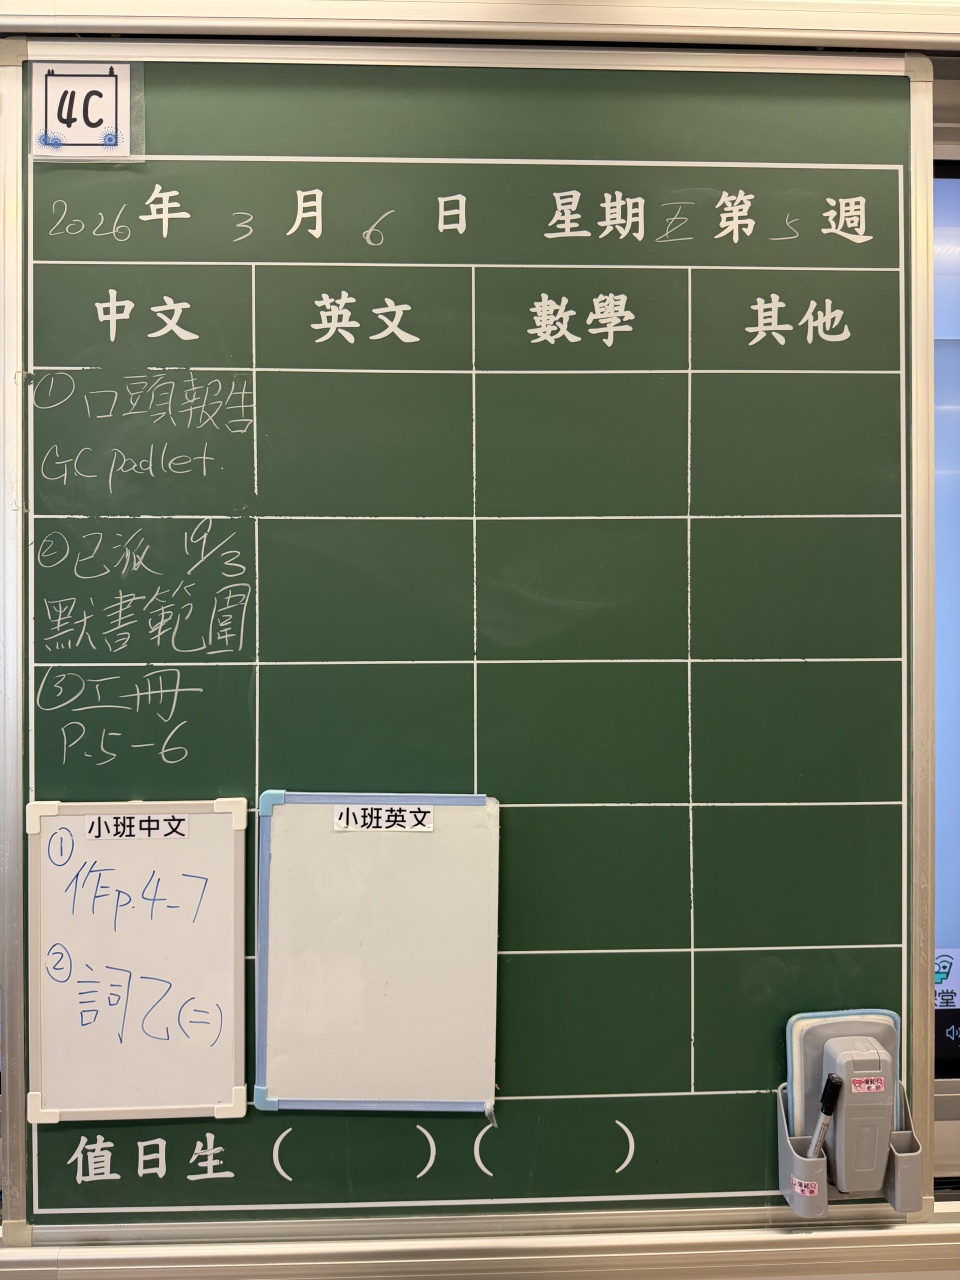 4C
2026年 3月 6日 星期五 第5週
中文 英文 數學 其他
① 口頭報告
GC padlet.
② 已派 19/3
默書範圍
③ 工冊
P.5-6
小班中文
①
作p.4-7
②
詞乙(二)
小班英文
值日生 ( ) ( )